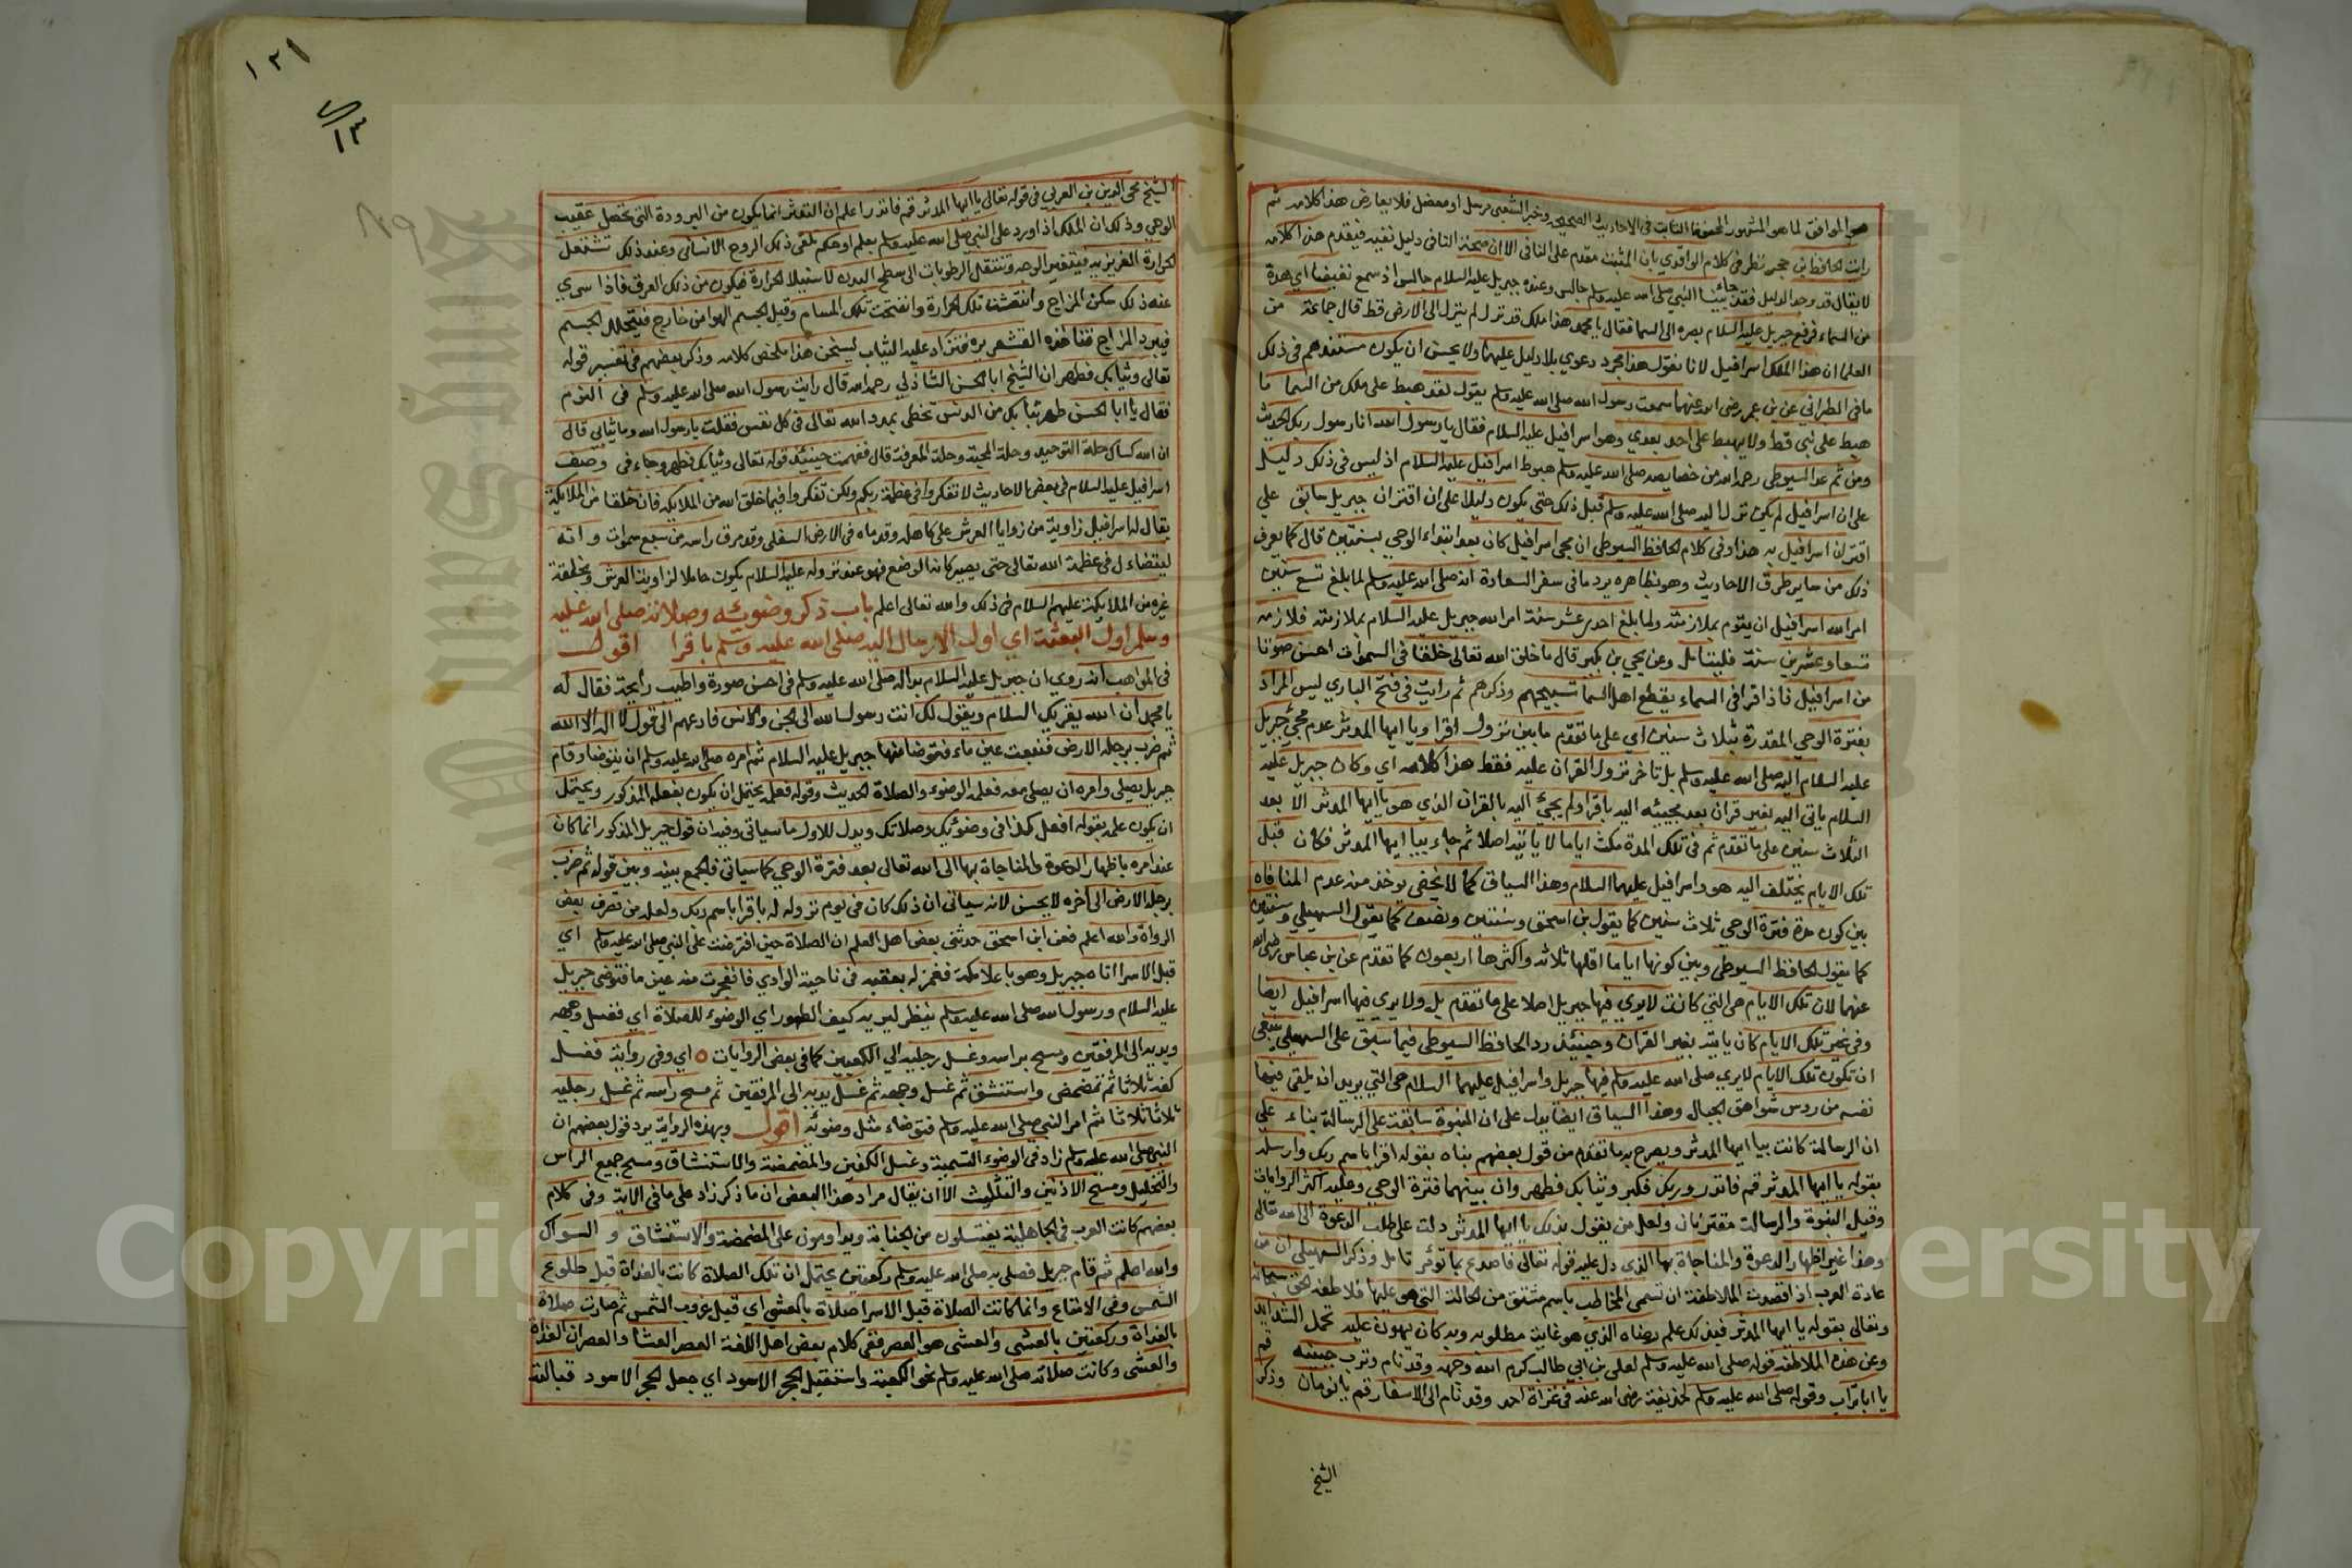 هو الموافق لما هو المشهور المحفوظ الثابت في الاحاديث الصحيحة وخبر الشعبي مرسل او معضل فلا يعارض هذا كلامه ثم
رايت الحافظ بن حجر نظر في كلام الواقدي بان المثبت مقدم على النافي الا ان صحبة النافي دليل نفيه فيقدم هذا كلامه
لا يقال قد وجد الدليل فقد جاء بينا النبي صلى الله عليه وسلم جالس وعنده جبريل عليه السلام جالس اذ سمع نقيضا اي هدة
من السماء فرفع جبريل عليه السلام بصره الى السما فقال يا محمد هذا ملك قد نزل لم ينزل الى الارض قط قال جماعة من
العلما ان هذا الملك اسرافيل لانا نقول هذا مجرد دعوي بلا دليل عليها ولا يحسن ان يكون مستندهم في ذلك
ما في الطبراني عن بن عمر رضي الله عنهما سمعت رسول الله صلى الله عليه وسلم يقول لقد هبط علي ملك من السما ما
هبط على نبي قط ولا يهبط على احد بعدي وهو اسرافيل عليه السلام فقال يا رسول الله انا رسول ربك الحديث
ومن ثم عد السيوطي رحمه الله من خصايصه صلى الله عليه وسلم هبوط اسرافيل عليه السلام اذ ليس في ذلك دليل
على ان اسرافيل لم يكن نزل اليه صلى الله عليه وسلم قبل ذلك حتى يكون دليلا على ان اقتران جبريل سابق علي
اقتران اسرافيل به هذا وفي كلام الحافظ السيوطي ان مجي اسرافيل كان بعد ابتداء الوحي بسنتين قال كما يعرف
ذلك من ساير طرق الاحاديث وهو بظاهره يرد ما في سفر السعادة انه صلى الله عليه وسلم لما بلغ تسع سنين
امر الله اسرافيل ان يقوم بملازمته ولما بلغ احدى عشر سنة امر الله جبريل عليه السلام بملازمته فلازمه
تسعا وعشرين سنة فليتامل وعن يحيي بن بكير قال ما خلق الله تعالى خلقا في السموات احسن صوتا
من اسرافيل فاذا قرا في السماء يقطع اهل السما تسبيحهم وذكرهم ثم رايت في فتح الباري ليس المراد
بفترة الوحي المقدرة بثلاث سنين اي على ما تقدم ما بين نزول اقرا ويا ايها المدثر عدم مجئ جبريل
عليه السلام اليه صلى الله عليه وسلم بل تاخر نزول القران عليه فقط هذا كلامه اي وكان جبريل عليه
السلام ياتي اليه بغير قران بعد مجيئه اليه باقرا ولم يجئ اليه بالقران الذي هو يا ايها المدثر الا بعد
الثلاث سنين على ما تقدم ثم في تلك المدة مكث اياما لا ياتيه اصلا ثم جاء بيا ايها المدثر فكان قبل
تلك الايام يختلف اليه هو واسرافيل عليهما السلام وهذا السياق كما لا يخفى يوخذ منه عدم المنافاه
بين كون مدة فترة الوحي ثلاث سنين كما يقول بن اسحق وسنتين ونصف كما يقول السهيلي وسنتين
كما يقول الحافظ السيوطي وبين كونها اياما اقلها ثلاثة واكثرها اربعون كما تقدم عن بن عباس رضي الله
عنهما لان تلك الايام هي التي كانت لا يري فيها جبريل اصلا على ما تقدم بل ولا يري فيها اسرافيل ايضا
وفي غير تلك الايام كان ياتيه بغير القران وحينئذ رد الحافظ السيوطي فيما سبق على السهيلي ينبغي
ان تكون تلك الايام لا يري صلى الله عليه وسلم فيها جبريل واسرافيل عليهما السلام هي التي يريد ان يلقي فيها
نفسه من روس شواهق الجبال وهذا السياق ايضا يدل على ان النبوة سابقة على الرسالة بناء علي
ان الرسالة كانت بيا ايها المدثر ويصرح به ما تقدم من قول بعضهم نباه بقوله اقرا باسم ربك وارسله
بقوله يا ايها المدثر قم فانذر وربك فكبر وثيابك فطهر وان بينهما فترة الوحي وعليه اكثر الروايات
وقيل النبوة والرسالة مقترنان ولعل من يقول بذلك يا ايها المدثر دلت على طلب الدعوة الى الله تعالى
وهذا غير اظهار الدعوة والمناجاة بها الذي دل عليه قوله تعالى فاصدع بما تؤمر تامل وذكر السهيلي ان من
عادة العرب اذا قصدت الملاطفة ان تسمى المخاطب باسم مشتق من الحالة التي هو عليها فلاطفه الحق سبحانه
وتعالى بقوله يا ايها المدثر فبذلك علم رضاه الذي هو غاية مطلوبه وبه كان يهون عليه تحمل الشدايد
وعن هذه الملاطفة قوله صلى الله عليه وسلم لعلي بن ابي طالب كرم الله وجهه وقد نام وترب جنبه قم
يا ابا تراب وقوله صلى الله عليه وسلم لحذيفة رضي الله عنه في غزاة احد وقد نام الى الاسفار قم يا نومان وذكر
الشيخ
١٢١
١٣
الشيخ محي الدين بن العربي في قوله تعالى يا ايها المدثر قم فانذر اعلم ان التدثر انما يكون من البرودة التي تحصل عقيب
الوحي وذلك ان الملك اذا ورد على النبي صلى الله عليه وسلم بعلم او حكم تلقى ذلك الروح الانساني وعند ذلك تشتعل
الحرارة الغريزيه فيتغير الوجه وتنتقل الرطوبات الى سطح البدن لاستيلا الحرارة فيكون من ذلك العرق فاذا سري
عنه ذلك سكن المزاج وانقشعت تلك الحرارة وانفتحت تلك المسام وقبل الجسم الهوا من خارج فيتخلل الجسم
فيبرد المزاج فتاخذه القشعريره فتزاد عليه الثياب ليسخن هذا ملخص كلامه وذكر بعضهم في تفسير قوله
تعالى وثيابك فطهر ان الشيخ ابا الحسن الشاذلي رحمه الله قال رايت رسول الله صلى الله عليه وسلم في النوم
فقال يا ابا الحسن طهر ثيابك من الدنس تحظى بمدد الله تعالى في كل نفس فقلت يا رسول الله وما ثيابي قال
ان الله كساك حلة التوحيد وحلة المحبة وحلة المعرفة قال ففهمت حينئذ قوله تعالى وثيابك فطهر وجاء في وصف
اسرافيل عليه السلام في بعض الاحاديث لا تفكروا في عظمة ربكم ولكن تفكروا فيما خلق الله من الملايكه فان خلقا من الملايكة
يقال له اسرافيل زاوية من زوايا العرش على كاهله وقدماه في الارض السفلى وقد مرق راسه من سبع سموات وانه
ليتضاءل في عظمة الله تعالى حتى يصير كانه الوضع فهو عند نزوله عليه السلام يكون حاملا لزاوية العرش ويخلفه
غيره من الملايكة عليهم السلام في ذلك والله تعالى اعلم باب ذكر وضوئه وصلاته صلى الله عليه
وسلم اول البعثة اي اول الارسال اليه صلى الله عليه وسلم باقرا اقول
في المواهب انه روي ان جبريل عليه السلام بدا له صلى الله عليه وسلم في احسن صورة واطيب رايحة فقال له
يا محمد ان الله يقريك السلام ويقول لك انت رسول الله الى الجن والانس فادعهم الى قول لا اله الا الله
ثم ضرب برجله الارض فنبعت عين ماء فتوضا منها جبريل عليه السلام ثم امره صلى الله عليه وسلم ان يتوضا وقام
جبريل يصلي وامره ان يصلي معه فعلمه الوضوء والصلاة الحديث وقوله فعلمه يحتمل ان يكون بفعله المذكور ويحتمل
ان يكون علمه بقوله افعل كذا في وضوئك وصلاتك ويدل للاول ما سياتي وفيه ان قول جبريل المذكور انما كان
عند امره باظهار الدعوة والمناجاة بها الى الله تعالى بعد فترة الوحي كما سياتي فالجمع بينه وبين قوله ثم ضرب
برجله الارض الى اخره لا يحسن لانه سياتي ان ذلك كان في يوم نزوله له باقرا باسم ربك ولعله من تصرف بعض
الرواة والله اعلم فعن ابن اسحق حدثني بعض اهل العلم ان الصلاة حين افترضت على النبي صلى الله عليه وسلم اي
قبل الاسرا اتاه جبريل وهو باعلا مكة فغمز له بعقبه في ناحية الوادي فانفجرت منه عين ما فتوضى جبريل
عليه السلام ورسول الله صلى الله عليه وسلم ينظر ليريه كيف الطهور اي الوضوء للصلاة اي فغسل وجهه
ويديه الى المرفقين ومسح براسه وغسل رجليه الي الكعبين كما في بعض الروايات ه اي وفي رواية فغسل
كفيه ثلاثا ثم تمضمض واستنشق ثم غسل وجهه ثم غسل يديه الى المرفقين ثم مسح راسه ثم غسل رجليه
ثلاثا ثلاثا ثم امر النبي صلى الله عليه وسلم فتوضاء مثل وضوئه اقول وبهذه الرواية يرد قول بعضهم ان
النبي صلى الله عليه وسلم زاد في الوضوء التسمية وغسل الكفين والمضمضة والاستنشاق ومسح جميع الراس
والتخليل ومسح الاذنين والتثليث الا ان يقال مراد هذا البعض ان ما ذكر زاد على ما في الاية وفي كلام
بعضهم كانت العرب في الجاهلية يغتسلون من الجنابة ويداومون على المضمضة والاستنشاق و السواك
والله اعلم ثم قام جبريل فصلى به صلى الله عليه وسلم ركعتين يحتمل ان تلك الصلاة كانت بالغداة قبل طلوع
الشمس وفي الامتاع وانما كانت الصلاة قبل الاسرا صلاة بالعشي اي قبل غروب الشمس ثم صارت صلاة
بالغداة وركعتين بالعشي والعشي هو العصر ففي كلام بعض اهل اللغة العصر العشا والعصران الغداة
والعشي وكانت صلاته صلى الله عليه وسلم نحو الكعبة واستقبل الحجر الاسود اي جعل الحجر الاسود قبالته
Copyright © King Saud University